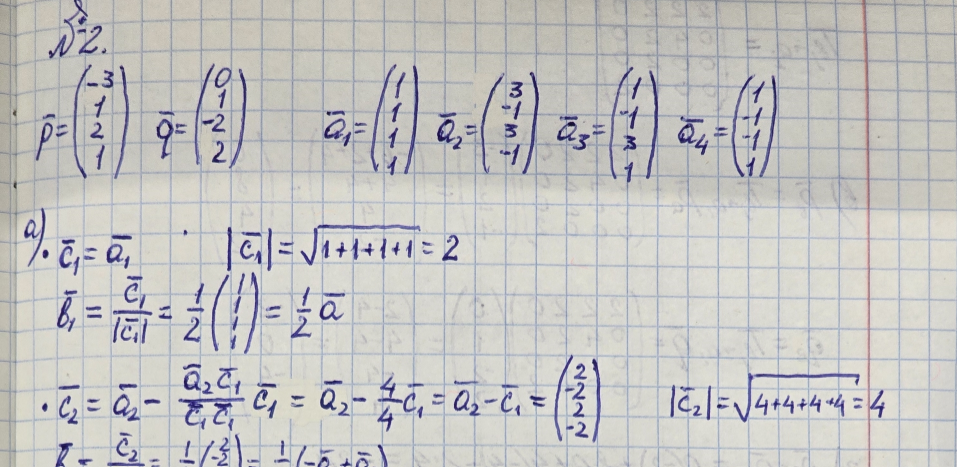 №2.
p̄ = (-3 1 2 1) q̄ = (0 1 -2 2) ā₁ = (1 1 1 1) ā₂ = (3 -1 3 -1) ā₃ = (1 -1 3 1) ā₄ = (1 -1 -1 1)
а) · c̄₁ = ā₁ |c̄₁| = √(1+1+1+1) = 2
b̄₁ = c̄₁/|c̄₁| = 1/2 (1 1 1 1) = 1/2 ā
· c̄₂ = ā₂ - (ā₂c̄₁)/(c̄₁c̄₁) c̄₁ = ā₂ - 4/4 c̄₁ = ā₂ - c̄₁ = (2 -2 2 -2) |c̄₂| = √(4+4+4+4) = 4